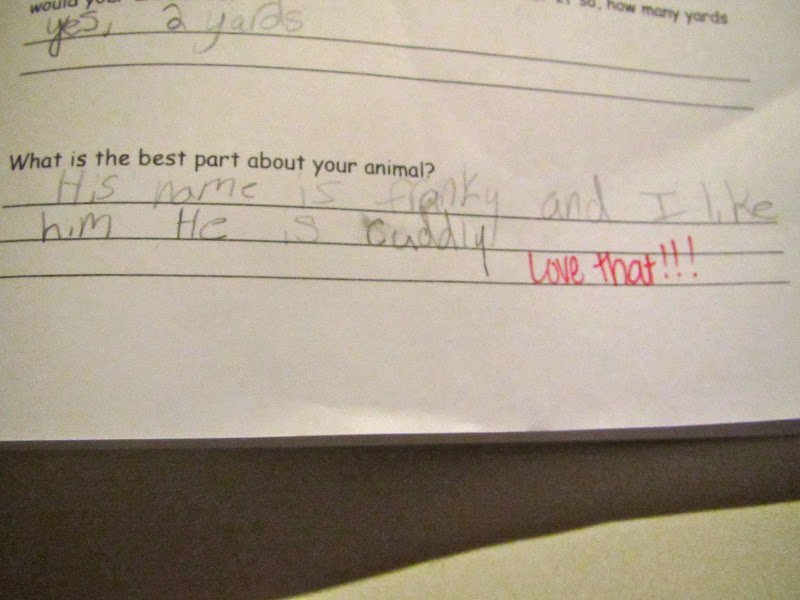 would your so, how many yards
yes, 2 yards
What is the best part about your animal?
His name is franky and I like
him He is cuddly
Love that!!!